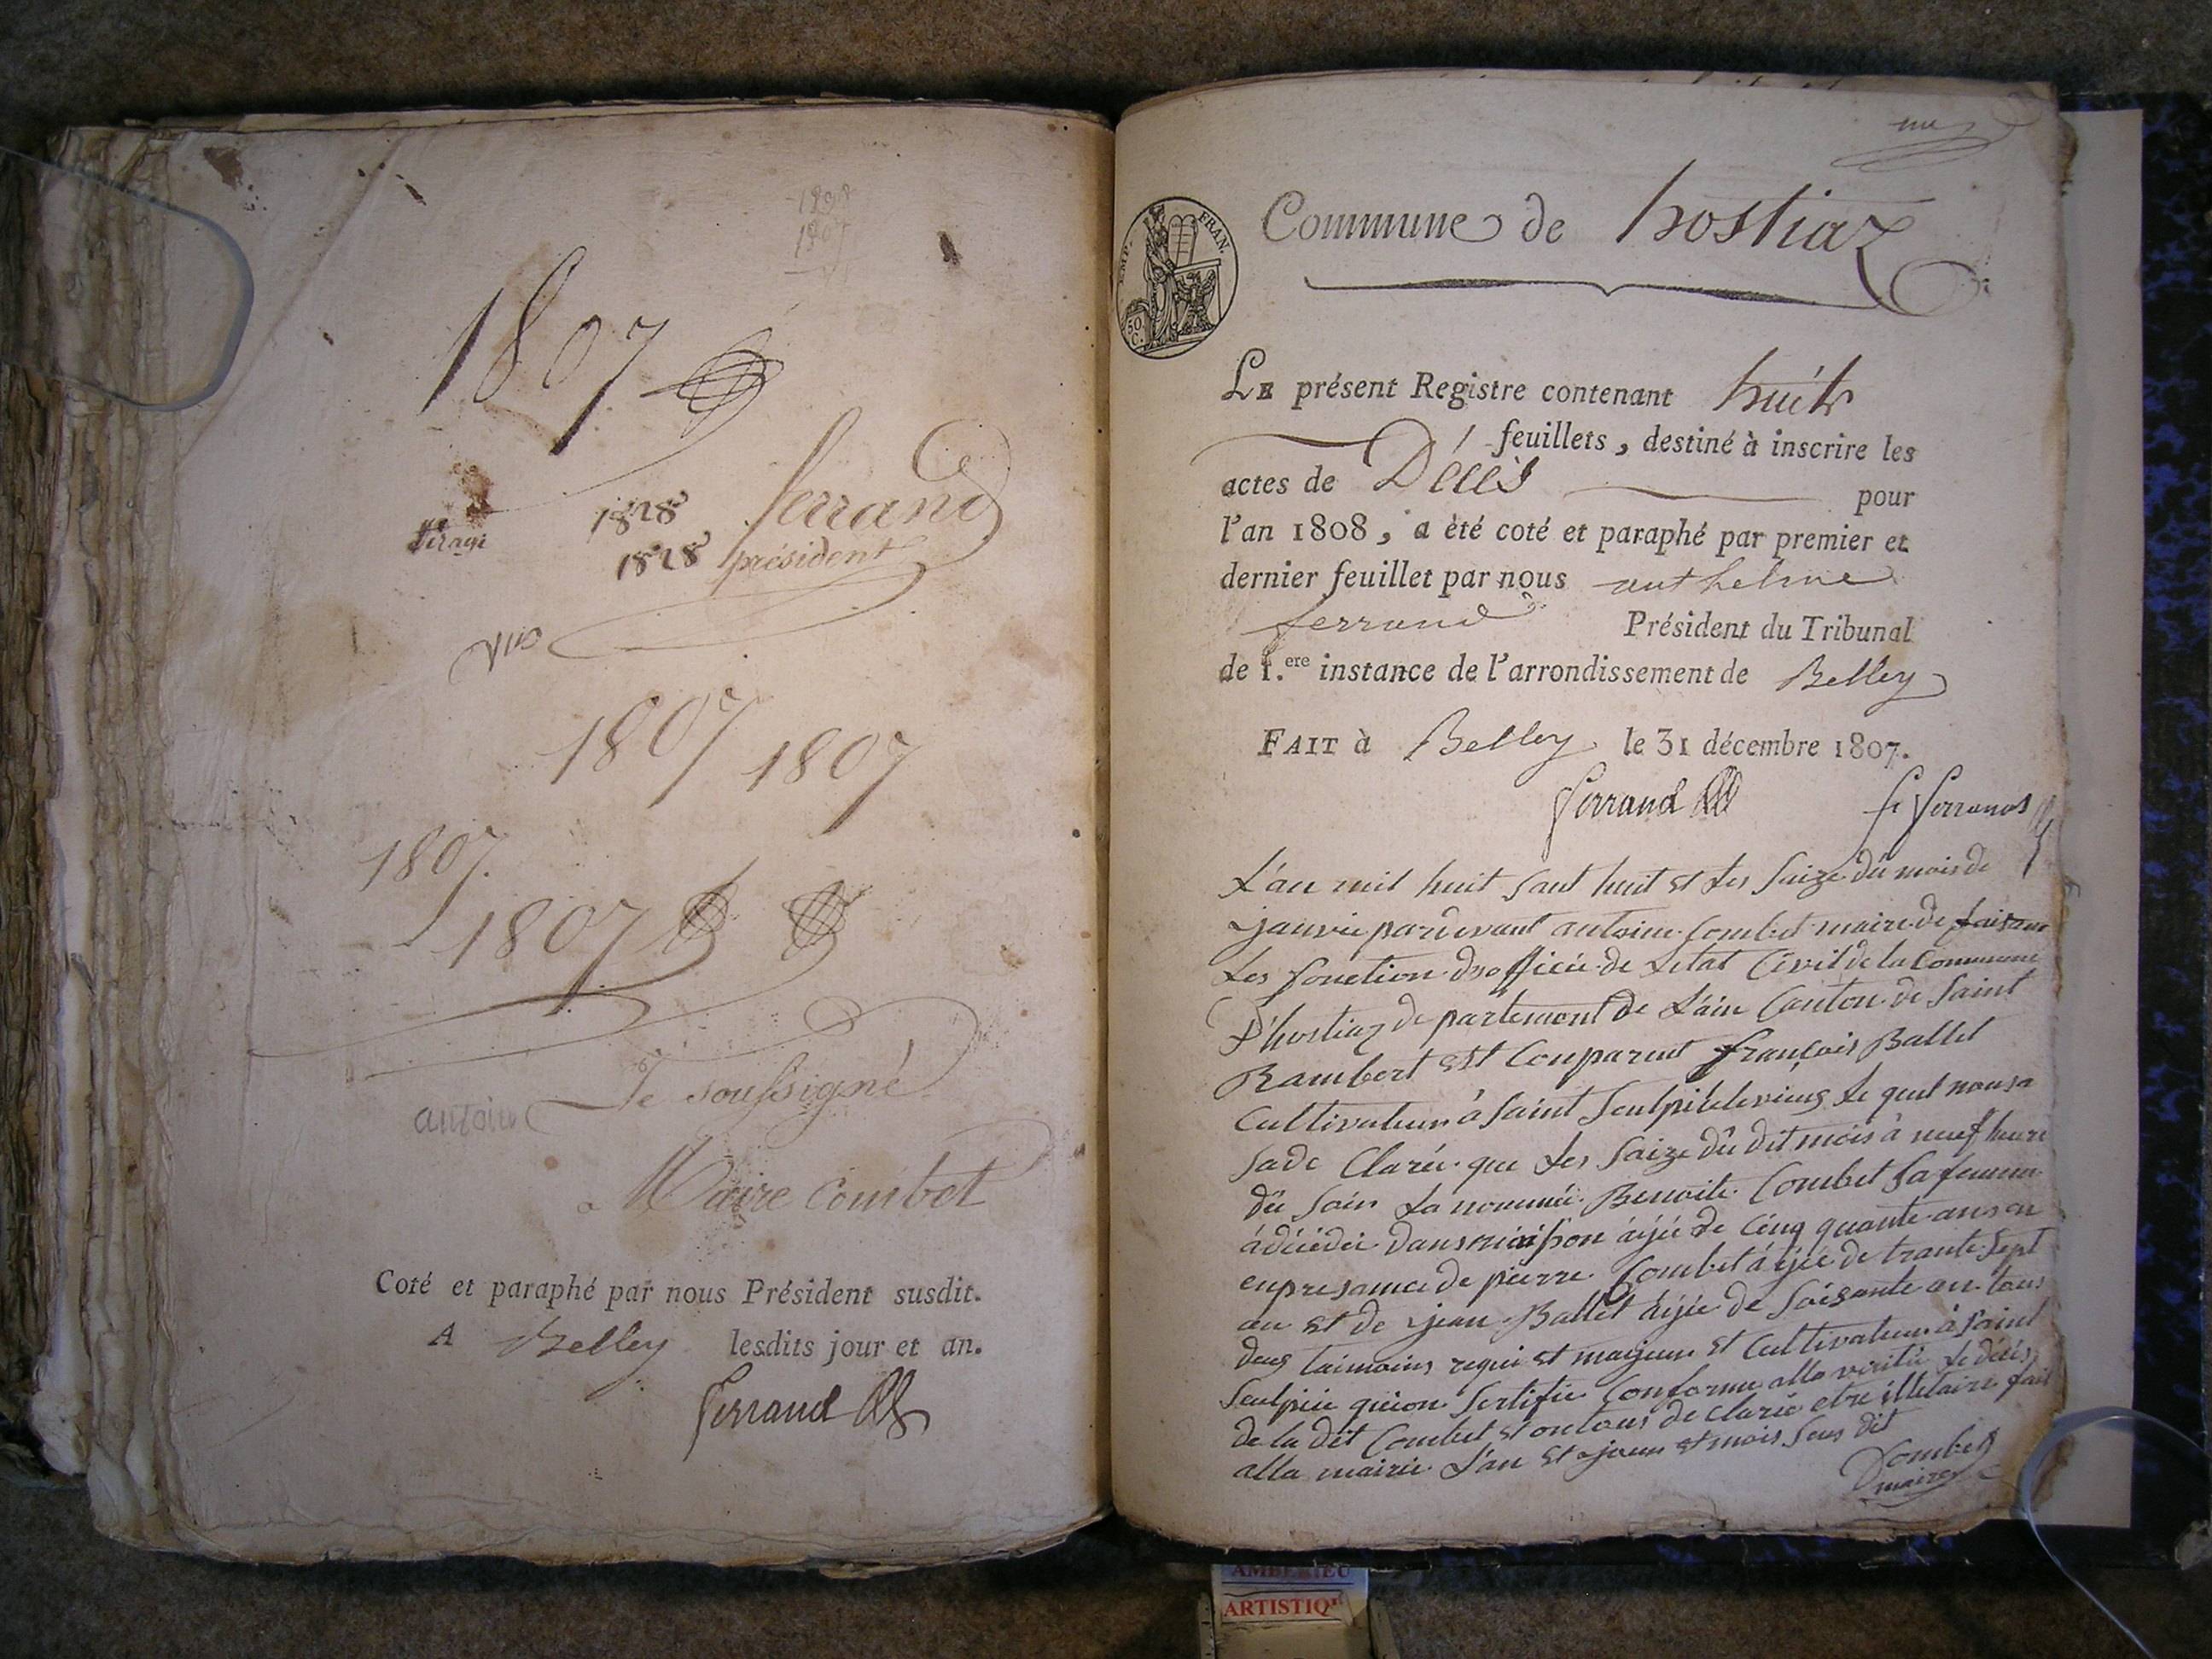 1808
1807
1807
1828
ferrand
1828
président
1807
1807
1807
1807
Je soussigné
antoine
Maire Combet
Coté et paraphé par nous Président susdit.
A Belley lesdits jour et an.
ferrand
EMP. FRAN.
50
C.
Commune de hostiaz
LE présent Registre contenant huit
feuillets, destiné à inscrire les
actes de Décès pour
l'an 1808, a été coté et paraphé par premier et
dernier feuillet par nous anthelme
ferrand Président du Tribunal
de 1.ere instance de l'arrondissement de Belley
FAIT à Belley le 31 décembre 1807.
ferrand
ferrand
L'an mil huit sant huit et les saize du mois de
janvie par devant antoine Combet maire de faisant
les fonction dreofficie de letat Civil de la Commune
d'hostiaz de partemont de L'ain Canton de Saint
Rambert est Conparut françois Ballet
Cultivateur à Saint le quel nous a
sa de Claréé que les saize du dit mois à neuf heure
dû soir la nommée Benoite Combet sa femme
à décédéé dans maison âjée de Cinq quante ans en
enpresance de pierre Combet âjée de trante sept
an et de jean Ballet âjée de soisante an tous
deus taimoins requi et majeur et Cultivateur à saint
Sulpice quion Sertifie Conforme alla verite le décés
de la dit Combet et on tous de claré etre illetaire fait
alla mairie L'an et jour et mois sus dit
Combet
maire
AMBERIEU
ARTISTIQ